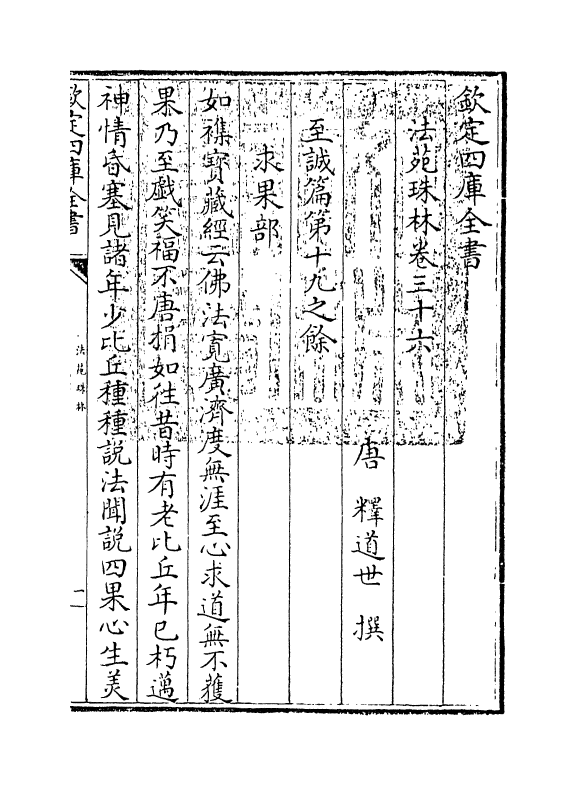 欽定四庫全書
法苑珠林卷三十六
唐 釋道世 撰
至誠篇第十九之餘
求果部
如襍寶藏經云佛法寛廣濟度無涯至心求道無不獲
果乃至戯笑福不唐捐如往昔時有老比丘年已朽邁
神情昏塞見諸年少比丘種種說法聞說四果心生羙
欽定四庫全書
法苑珠林